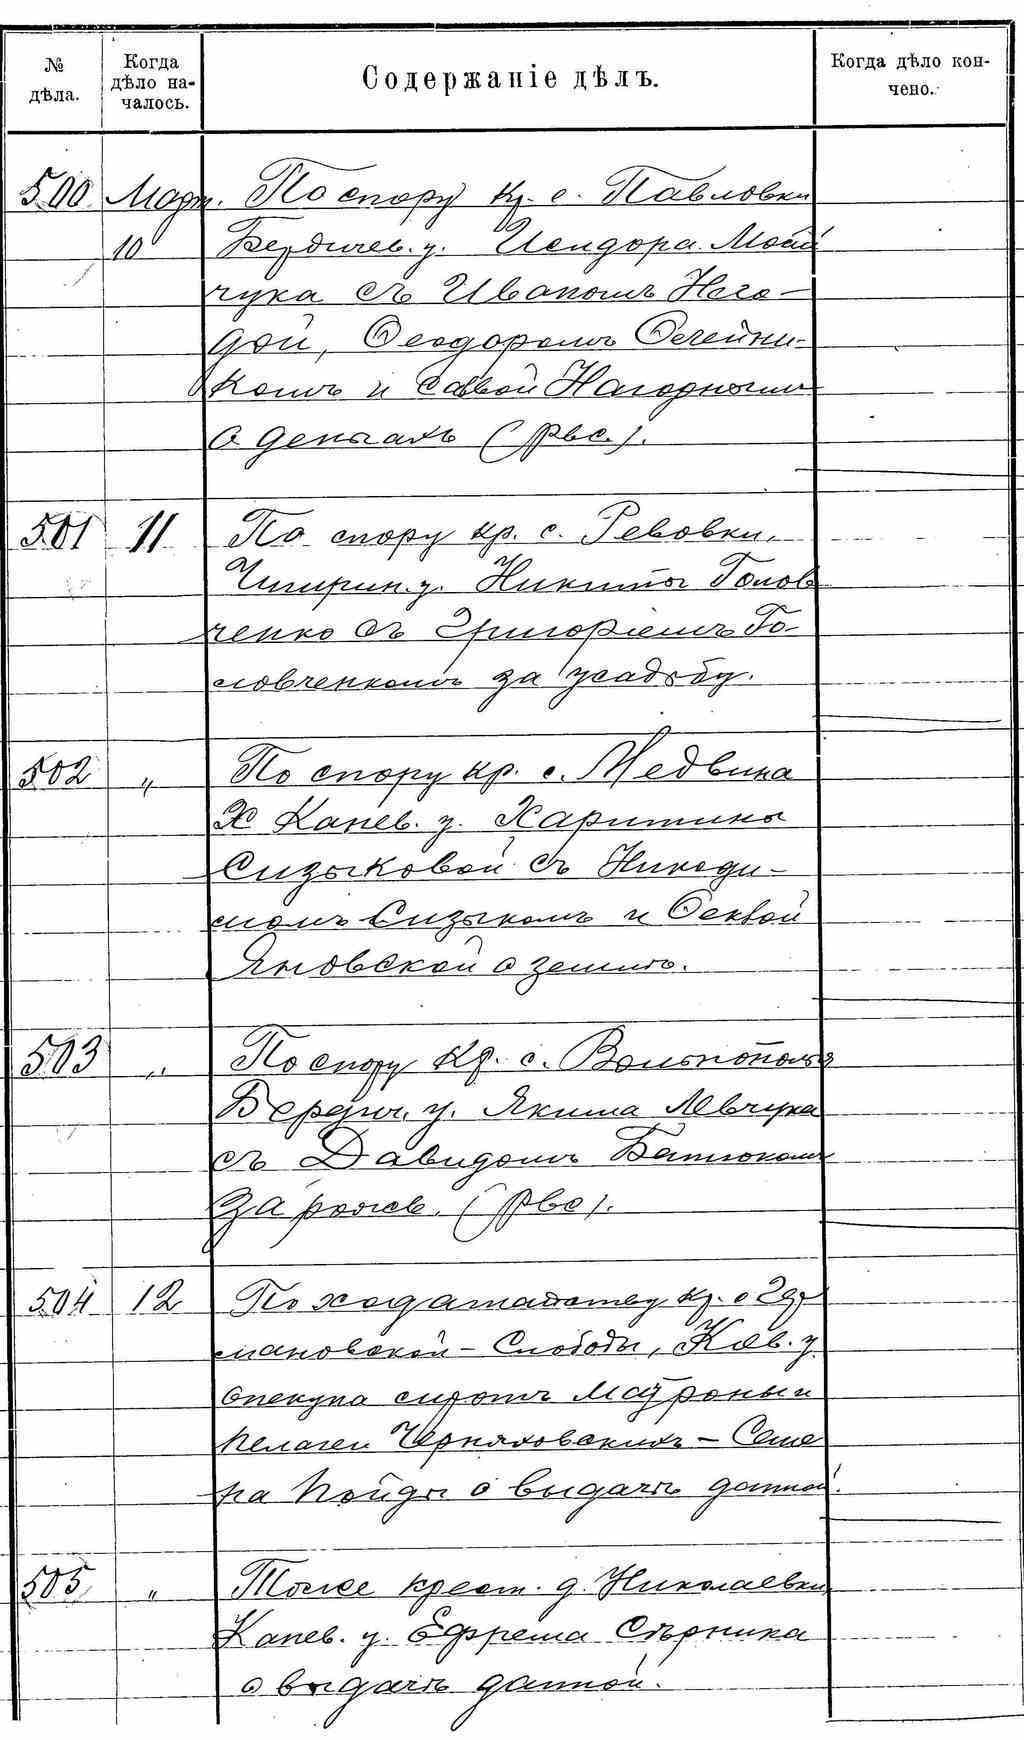 № дѣла.
Когда дѣло на-
чалось.
Содержаніе дѣлъ.
Когда дѣло кон-
чено.
500 Март. По спору кр. с. Павловки
10 Бердичев. у. Исидора Мосій
чука съ Иваномъ Него-
дой, Ѳеодоромъ Олейни-
комъ и Саввой Нагорнымъ
о деньгахъ (рвс.).
501 11 По спору кр. с. Ревовки,
Чигирин. у. Никиты Голов
ченко съ Григоріемъ Го-
ловченкомъ за усадьбу.
502 " По спору кр. с. Медвина
Канев. у. Харитины
Сизыковой съ Никоди-
момъ Сизыкомъ и Ѳеклой
Яновской о землѣ.
503 " По спору кр. с. Вольнополья
Бердич. у. Якима Левчука
съ Давидомъ Батюкомъ
за рожь. (рвс).
504 12 По ходатайству кр. с
мановской-Слободы, у.
опекуна сиротъ Матроны и
Пелагеи Черняховскихъ - Семе
на Пойды о выдачѣ данной.
505 " Тоже крест. д. Николаевки
Канев. у. Ефрема Сѣрника
о выдачѣ данной.